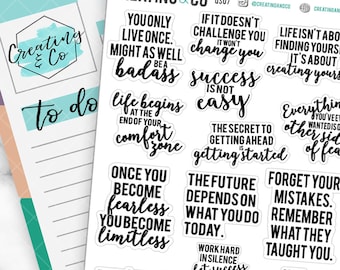 Creating
& Co
to do
CREATING & CO
@CREATINGANDCO
YOU ONLY
LIVE ONCE.
MIGHT AS WELL
BE a
badass
IF IT DOESN'T
CHALLENGE YOU
IT WON'T
change you
LIFE ISN'T ABOUT
FINDING YOURSE
IT'S ABOUT
creating yourse
success
IS NOT
easy
life begins
AT THE
END OF YOUR
comfort
zone
Everything
YOU'VE E
WANTED IS O
other side
of fea
THE SECRET TO
GETTING AHEAD
is
getting started
ONCE YOU
BECOME
fearless
YOU BECOME
limitless
THE FUTURE
DEPENDS ON
WHAT YOU DO
TODAY.
FORGET YOUR
MISTAKES.
REMEMBER
WHAT THEY
TAUGHT YOU.
WORK HARD
IN SILENCE
let success